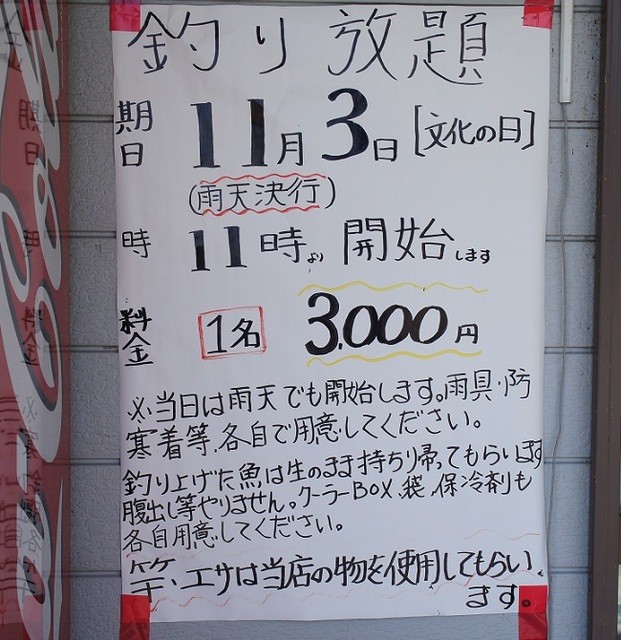 釣り放題
期日 11月3日 [文化の日]
(雨天決行)
時 11時より 開始します
料金 1名 3.000円
※当日は雨天でも開始します。雨具・防
寒着等、各自で用意してください。
釣り上げた魚は生のまま持ち帰ってもらいます
腹出し等やりません。クーラーBOX、袋、保冷剤も
各自用意してください。
竿、エサは当店の物を使用してもらい
ます。